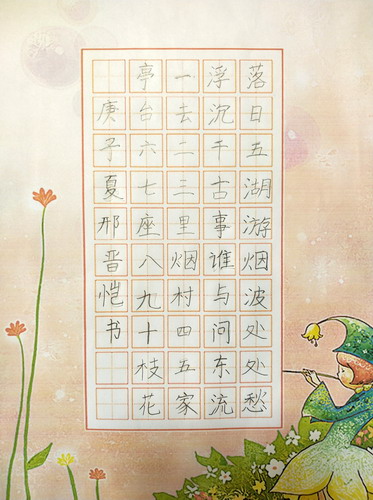 落日五湖游烟波处处愁
浮沉千古事谁与问东流
一去二三里烟村四五家
亭台六七座八九十枝花
庚子夏邢晋恺书